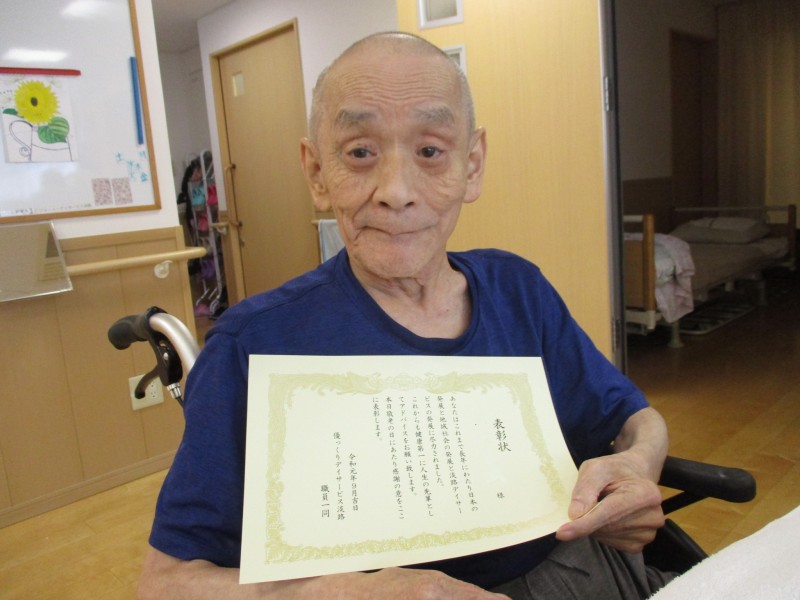 表彰状
様
あなたはこれまで長年にわたり日本の
発展と地域社会の発展と淡路デイサー
ビスの発展に尽力されました。
これからも健康第一に人生の先輩とし
てアドバイスをお願い致します。
本日敬老の日にあたり感謝の意をここ
に表彰します。
令和元年９月吉日
優っくりデイサービス淡路
職員一同